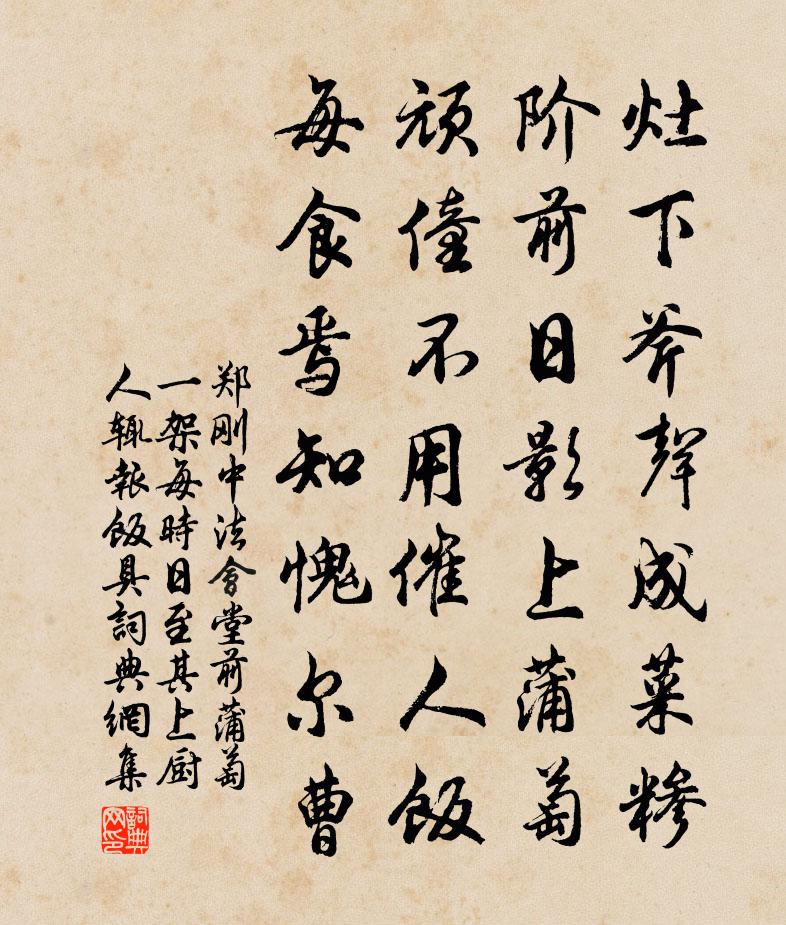 灶下斧聲成菜糝
阶前日影上蒲萄
顽僮不用催人飯
每食焉知愧尔曹
郑刚中法會堂前蒲萄
一架每時日至其上厨
人辄報飯具詞典網集
詞典网印